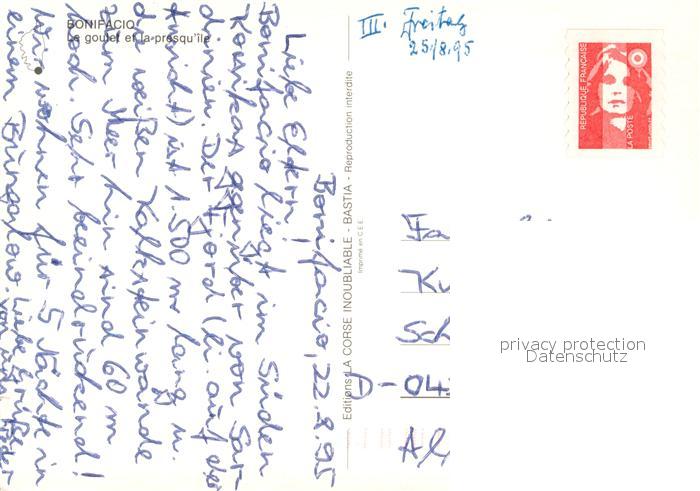 BONIFACIO
Le goulet et la presqu'île
III. Freitag
25/8.95
RÉPUBLIQUE FRANÇAISE
LA POSTE
Bonifacio, 22.8.95
Liebe Eltern!
Bonifacio liegt im Süden
Korsikas gegenüber von Sar-
dinien. Der Fjord (li. auf der
Ansicht) ist 1.500 m lang u.
die weißen Kalksteinwände
zum Meer hin sind 60 m
hoch. Sehr beeindruckend!
Wir wohnen für 5 Nächte in
einem Bungalow. Liebe Grüße
von
Editions LA CORSE INOUBLIABLE - BASTIA - Reproduction interdite
Imprimé en C.E.E.
Fa
Ku
Sch
D-04
Al
privacy protection
Datenschutz